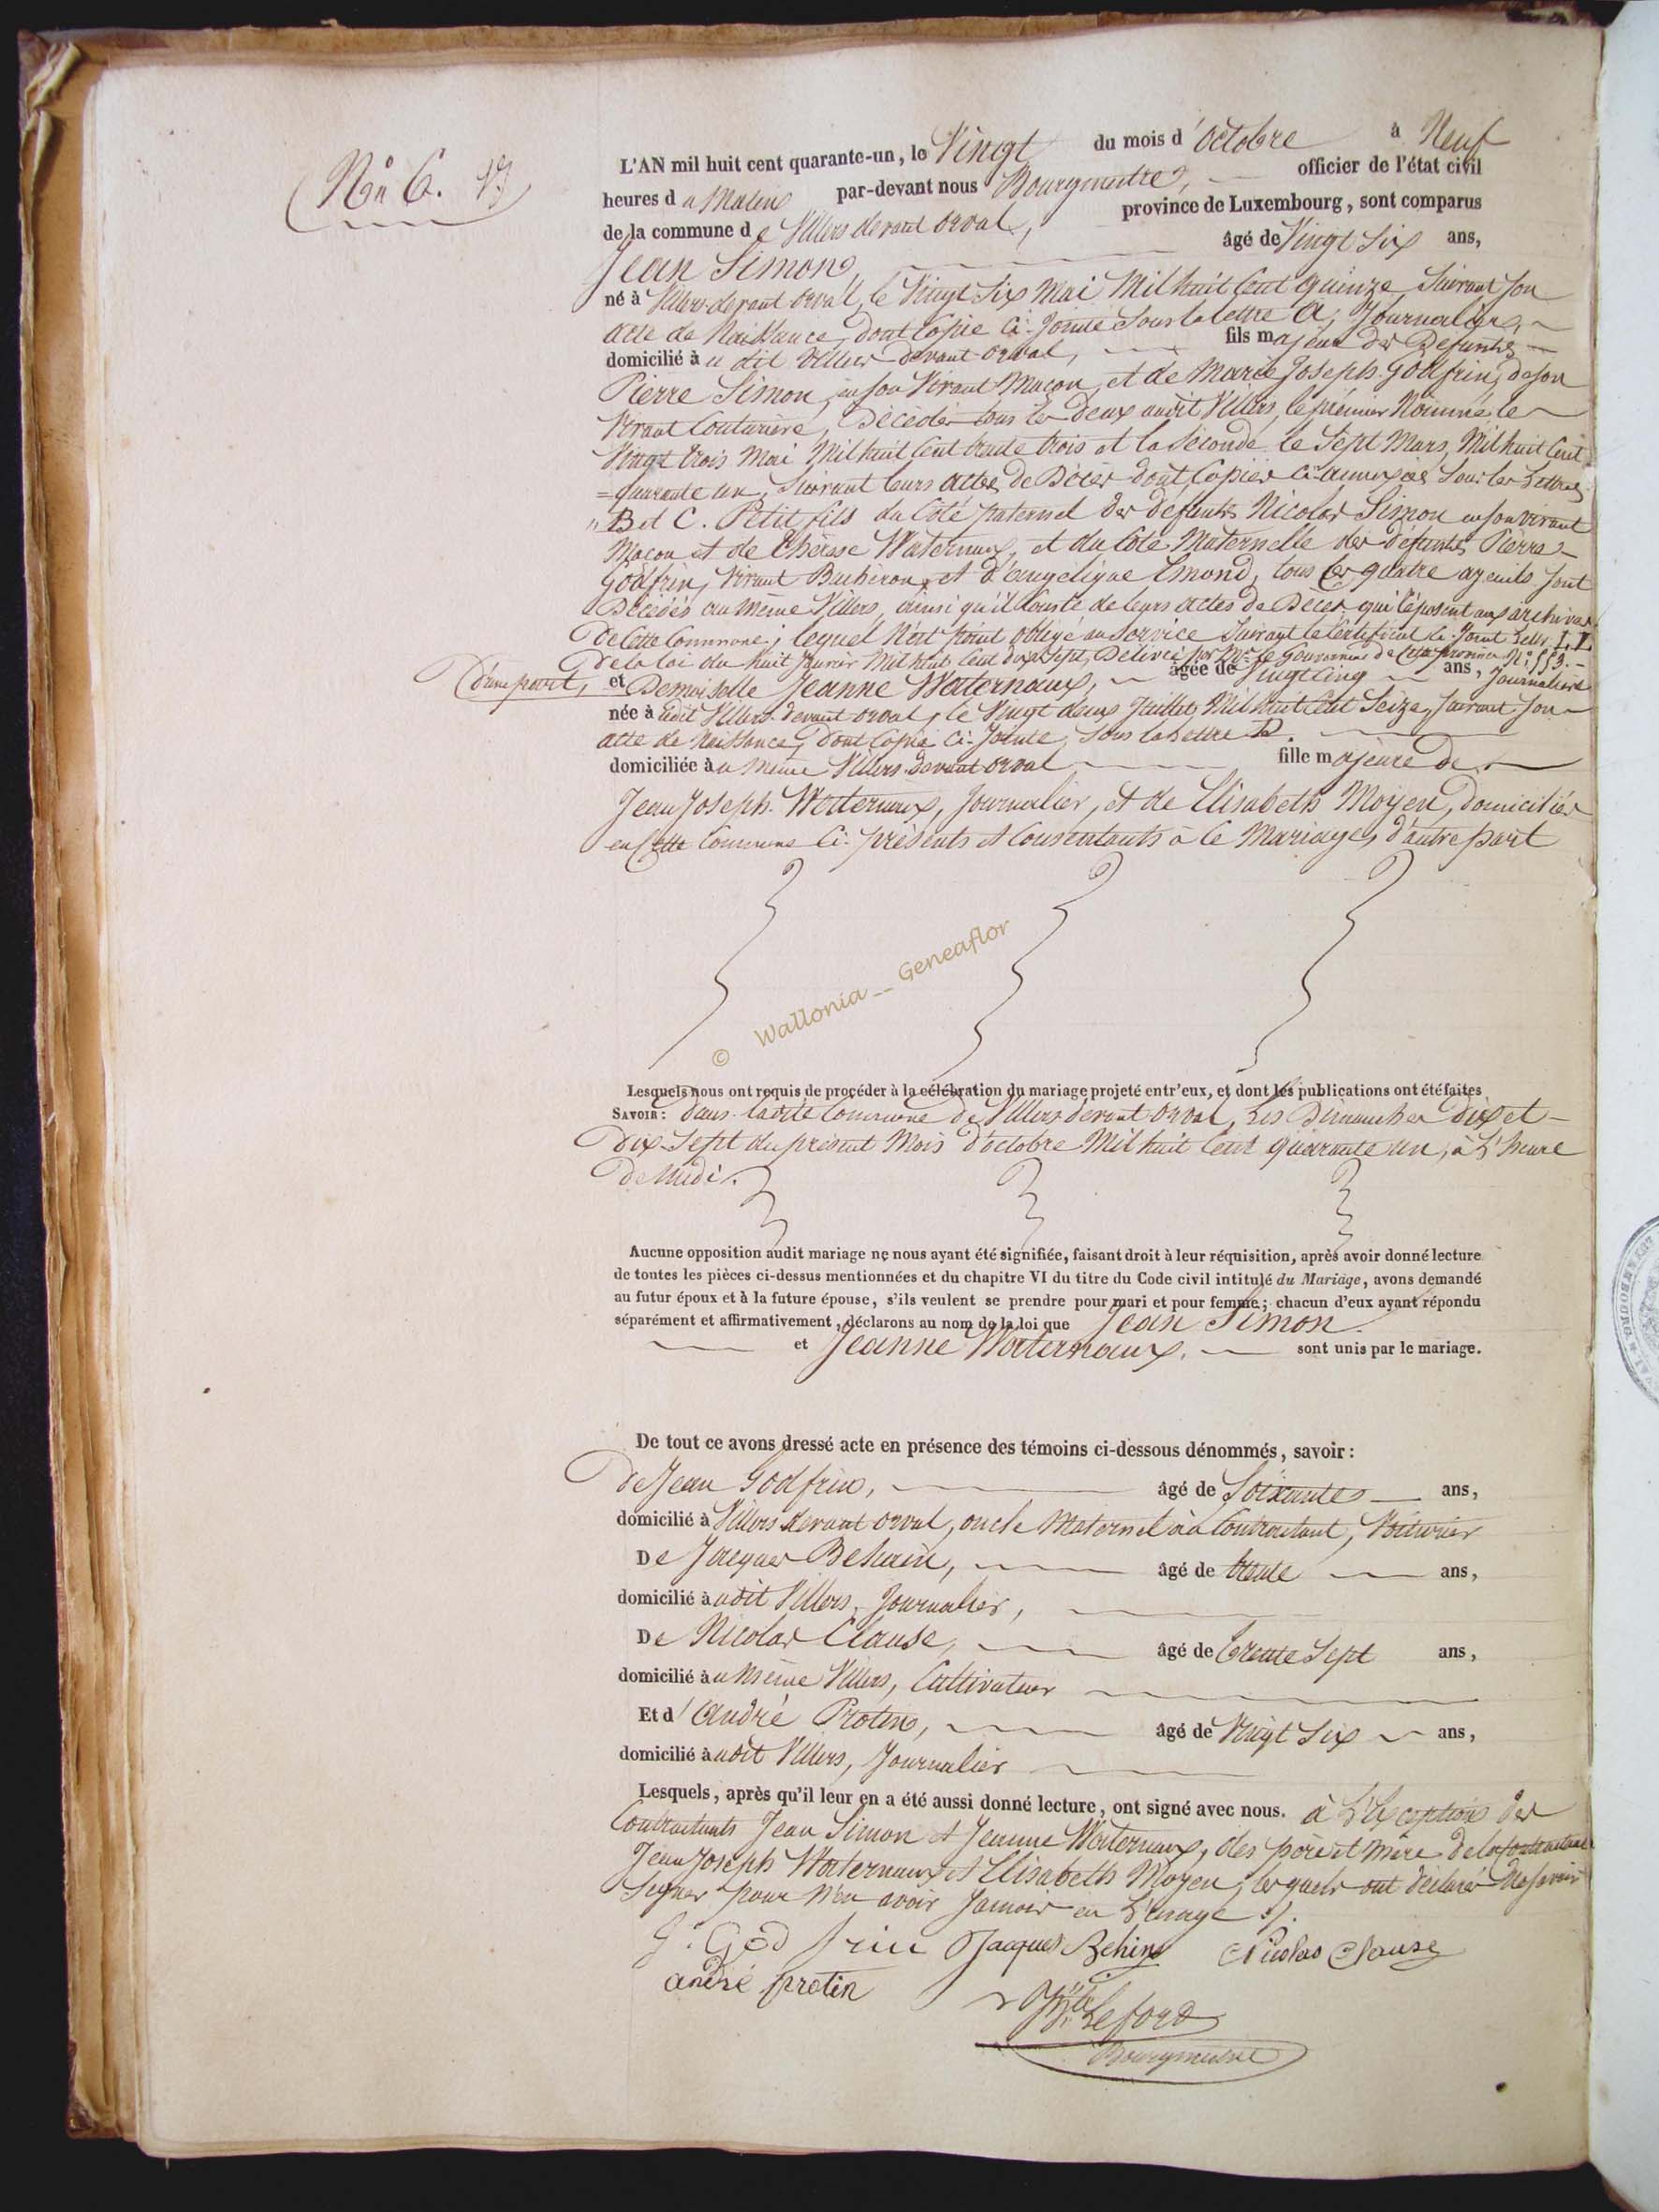 No 6.
L'AN mil huit cent quarante-un, le Vingt du mois d'Octobre à Neuf
heures du Matin par-devant nous Bourgmestre, officier de l'état civil
de la commune de Villers devant orval, province de Luxembourg, sont comparus
Jean Simon, âgé de Vingt Six ans,
né à Villers devant orval, le Vingt Six Mai Mil huit Cent quinze Suivant Son
acte de Naissance, dont Copie Ci-Jointe Sous la lettre A, Journalier,
domicilié à u dit Villers devant orval, fils majeur des Defunts
Pierre Simon, en Son Vivant Maçon, et de Marie Joseph Godfrin, de Son
Vivant Couturière, Décédés tous les deux audit Villers, le premier Nommé le
Vingt trois Mai Mil huit Cent trente trois et la Seconde le Sept Mars, Mil huit Cent
quarante un, Suivant leurs actes de Décès dont Copies Ci-annexées Sous les Lettres
B et C. Petit fils du Côté paternel des défunts Nicolas Simon en son vivant
Maçon et de Thérèse Waternaux, et du Côté Maternelle des défunts Pierre
Godfrin, Vivant Bucheron, et d'angélique Emond, tous les quatre ayeuils Sont
Décédés au Même Villers, ainsi qu'il Conste de leurs actes de Décès qui Reposent aux archives
de Cette Commune; lequel N'est point obligé au Service Suivant le Certificat Ci-Joint Lettr. LL
de la loi du huit Janvier Mil huit Cent dix Sept, Délivré par Mr le Gouverneur de Cette province No 553.
D'une part, et Demoiselle Jeanne Waternaux, âgée de Vingt Cinq ans, Journalière
née à Ludit Villers devant orval, le Vingt deux Juillet Mil huit Cent Seize, Suivant Son
acte de Naissance, dont Copie Ci-Jointe, Sous la Lettre D.
domiciliée à u même Villers devant orval fille majeure de
Jean Joseph Waternaux, Journalier, et de Elisabeth Moyen, domiciliés
en Cette Commune Ci-présents et Consentants à Ce Mariage, d'autre part
© Wallonia__Geneaflor
Lesquels nous ont requis de procéder à la célébration du mariage projeté entr'eux, et dont les publications ont été faites
SAVOIR: Dans ladite Commune de Villers devant Orval, Les Dimanches Dix et
Dix-Sept du présent Mois d'octobre Mil huit Cent quarante un, à L'heure
de Midi.
Aucune opposition audit mariage ne nous ayant été signifiée, faisant droit à leur réquisition, après avoir donné lecture
de toutes les pièces ci-dessus mentionnées et du chapitre VI du titre du Code civil intitulé du Mariage, avons demandé
au futur époux et à la future épouse, s'ils veulent se prendre pour mari et pour femme; chacun d'eux ayant répondu
séparément et affirmativement, déclarons au nom de la loi que Jean Simon
et Jeanne Waternaux. sont unis par le mariage.
De tout ce avons dressé acte en présence des témoins ci-dessous dénommés, savoir:
De Jean Godfrin, âgé de Soixante ans,
domicilié à Villers devant orval, oncle Maternel du Contractant, Voiturier
De Jacques Behin, âgé de trente ans,
domicilié à udit Villers, Journalier,
De Nicolas Clause, âgé de trente Sept ans,
domicilié à u Même Villers, Cultivateur
Et d'André Protin, âgé de Vingt Six ans,
domicilié à udit Villers, Journalier
Lesquels, après qu'il leur en a été aussi donné lecture, ont signé avec nous. à L'Exception des
Contractants Jean Simon et Jeanne Waternaux, des père et mère de la Contractante
Jean Joseph Waternaux et Elisabeth Moyen, lesquels ont déclaré Ne Savoir
Signer pour N'en avoir Jamais eu L'usage
J. Godfrin Jacques Behin Nicolas Clause
andré protin
Leford
Bourgmestre